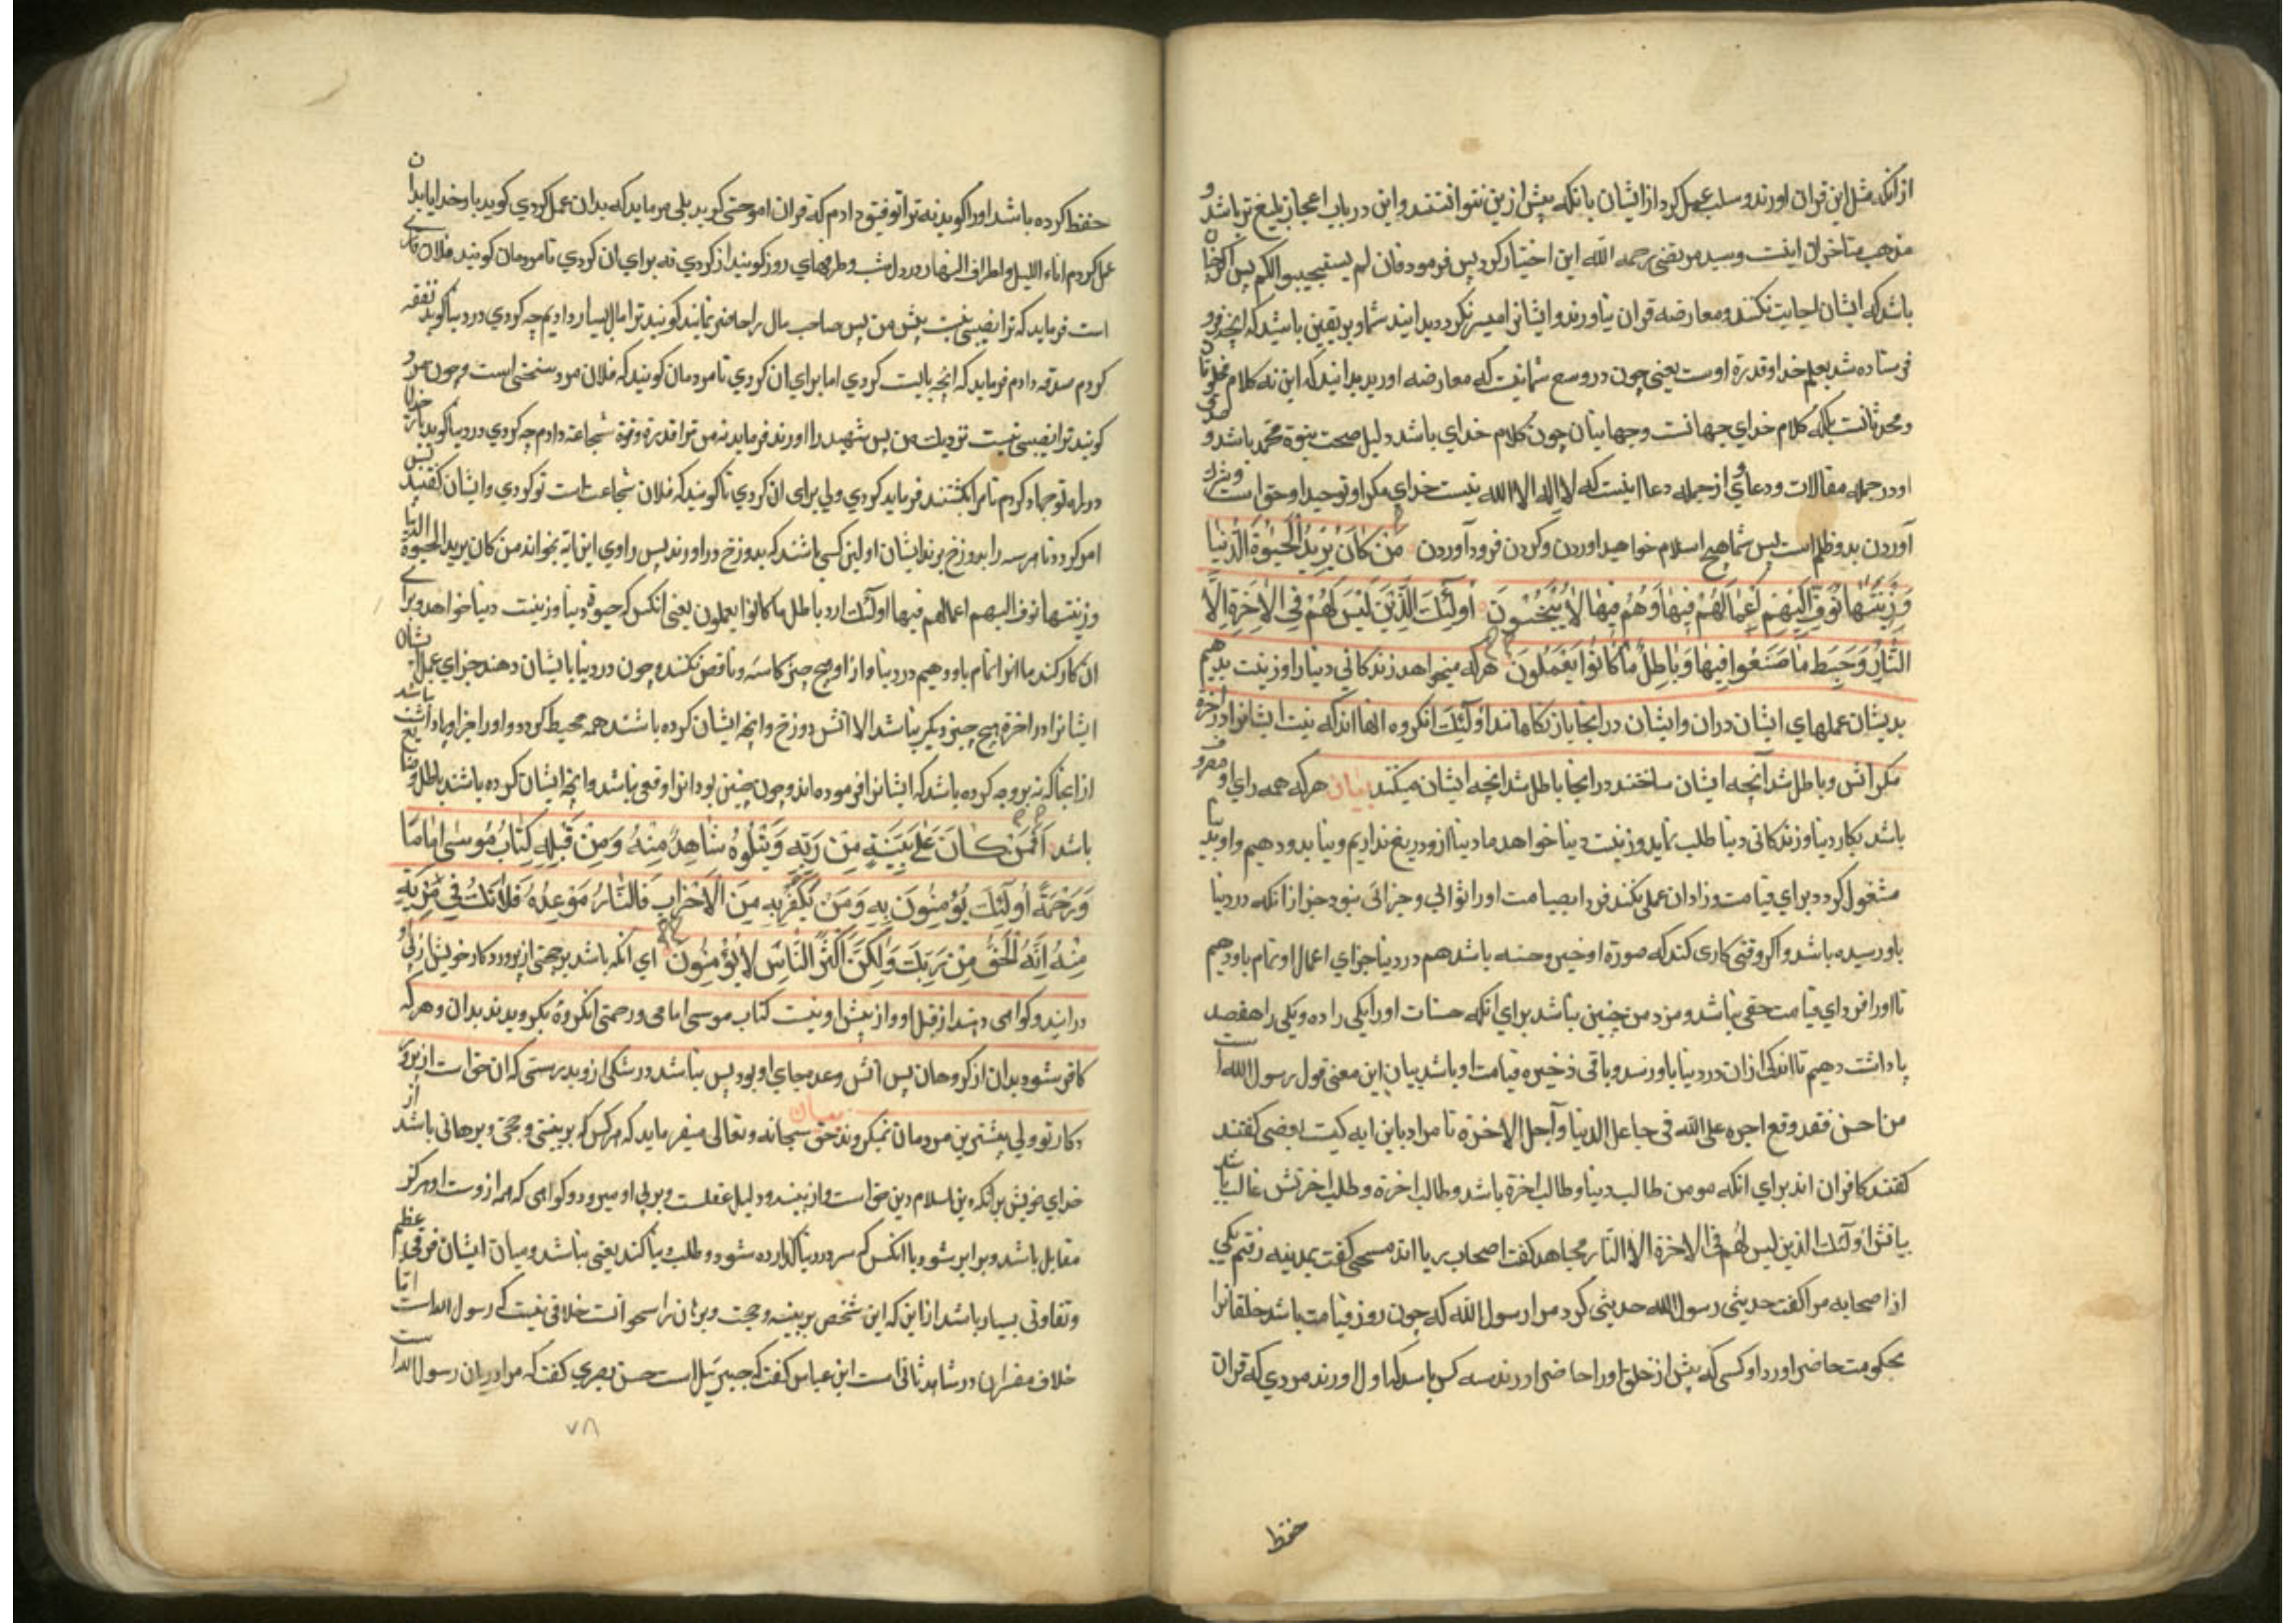 ازانکه مثل این قران اورند و سلب عمل کرد از ایشان بانکه پیش ازین نتوانستند و این در باب اعجاز بلیغ تر باشد و
مذهب متاخران اینست و سید مرتضی رحمه الله این اختیار کرد پس فرمود فان لم یستجیبوا لکم پس اکر چنان
باشد که ایشان اجابت نکنند و معارضه قران نیاورند و ایشانرا میسر نکردد بدانید شما و بر یقین باشید که انچه فرو
فرستاده شد بعلم خدا و قدرة اوست یعنی چون در وسع شما نیست که معارضه اورید بدانید که این نه کلام مخلوقان
و محدثانست بلکه کلام خدای جهانست و جهانیان چون کلام خدای باشد دلیل صحت نبوة محمد باشد و صدق
او در جمله مقالات و دعاوی از جمله دعا اینست که لا اله الا الله نیست خدای مکر او توحید او حق است و شرک
آوردن بدو ظلم است پس شما هیچ اسلام خواهید اوردن و کردن فرود آوردن مَن کَانَ یُرِیدُ الْحَیٰوةَ الدُّنْیَا
وَ زِینَتَهَا نُوَفِّ اِلَیْهِمْ اَعْمَالَهُمْ فِیهَا وَهُمْ فِیهَا لَا یُبْخَسُونَ اُولٰئِکَ الَّذِینَ لَیْسَ لَهُمْ فِی الْاٰخِرَةِ اِلَّا
النَّارُ وَحَبِطَ مَا صَنَعُوا فِیهَا وَبَاطِلٌ مَا کَانُوا یَعْمَلُونَ هرکه میخواهد زندکانی دنیا را و زینت بدهیم
بدیشان عملهای ایشان دران و ایشان در انجا باز نکاهانند اولئک انکروه انها اند که نیست ایشانرا در اخرة
مکر اتش و باطل شد آنچه ایشان ساختند در انجا باطل شد انچه ایشان میکنند بیان هرکه همه رای او مصروف
باشد بکار دنیا و زندکانی دنیا طلب نماید و زینت دنیا خواهد ما دنیا ازو دریغ نداریم و دنیا بدو دهیم و او بدنیا
مشغول کردد برای قیامت و زاد ان عملی نکند فردا بقیامت اورا ثوابی و جزائی نبود جز از انکه در دنیا
باو رسیده باشد و اکر وقتی کاری کند که صورة او خیر و حسنه باشد هم در دنیا جزای اعمال او تمام باو دهیم
تا اورا فردای قیامت حقی نباشد و مزد من چنین نباشد برای انکه حسنات اورا یکی را ده و یکی را هفصد
پاداشت دهیم تا اندکی ازان در دنیا باو رسد و باقی ذخیره قیامت او باشد بیان این معنی قول رسول الله است
من احسن فقد وقع اجره علی الله فی عاجل الدنیا و آجل الاخرة تا مراد باین ایه کیست بعضی کفتند
کفتند کافران اند برای انکه مومن طالب دنیا و طالب اخرة باشد و طالب اخرة و طلب اخرتش غالب باشد
اولئک الذین لیس لهم فی الاخرة الا النار مجاهد کفت اصحاب ریا اند کفت بمدینه رفتم یکی
از صحابه مرا کفت حدیثی رسول الله حدیثی کرد مرا رسول الله که چون روز قیامت باشد خلقانرا
بحکومت حاضر اورد و کسی که پیش از خلق اورا حاضر اورند سه کس باشد که اول اورند مردی که قران
حفظ
حفظ کرده باشد اورا کوید نه ترا توفیق دادم که قران اموختی کوید بلی فرماید که بدان عمل کردی کوید بار خدایا بدان
عمل کردم اناء اللیل و اطراف النهار در دل شب و طرفهای روز کویند از کردی نه برای ان کردی تا مردمان کویند فلان قاری
است فرماید که ترا نصیبی نیست پیش من پس صاحب مال را حاضر نمایند کویند ترا مال بسیار دادیم چه کردی در دنیا کوید نفقه
کردم صدقه دادم فرماید که انچه بایست کردی اما برای ان کردی تا مردمان کویند که فلان مرد سخی است و چون مرد
کویند ترا نصیبی نیست نزدیک من پس شهید را اورند فرماید نه من ترا قدرة و قوة شجاعة دادم چه کردی در دنیا کوید بار خدایا
در راه تو جهاد کردم تا مرا بکشتند فرماید کردی ولی برای ان کردی تا کویند که فلان شجاعست تو کردی و ایشان کفتند پس
امر کردد تا هر سه را بدوزخ برند ایشان اولین کسی باشند که بدوزخ در اورند پس راوی این ایه بخواند من کان یرید الحیوة الدنیا
و زینتها نوف الیهم اعمالهم فیها اولئک ارد باطل ما کانوا یعملون یعنی انکس که حیوة دنیا و زینت دنیا خواهد و برای
ان کار کند ما انرا تمام باو دهیم در دنیا و از او هیچ چیز کاسته و ناقص نکنند و چون در دنیا با ایشان دهند جزای عمل ایشان
ایشانرا در اخرة هیچ چیز دیکر نباشد الا اتش دوزخ و انچه ایشان کرده باشند همه محیط کردد و اورا جزا و پاداشت باشد
از انجا که نه بر وجه کرده باشد که ایشانرا فرموده اند و چون چنین بود انرا وقعی نباشد و انچه ایشان کرده باشند باطل و ضایع
باشد اَفَمَنْ کَانَ عَلٰی بَیِّنَةٍ مِنْ رَبِّهِ وَیَتْلُوهُ شَاهِدٌ مِنْهُ وَمِنْ قَبْلِهِ کِتَابُ مُوسٰی اِمَامًا
وَرَحْمَةً اُولٰئِکَ یُؤْمِنُونَ بِهِ وَمَنْ یَکْفُرْ بِهِ مِنَ الْاَحْزَابِ فَالنَّارُ مَوْعِدُهُ فَلَا تَکُ فِی مِرْیَةٍ
مِنْهُ اِنَّهُ الْحَقُّ مِنْ رَبِّکَ وَلٰکِنَّ اَکْثَرَ النَّاسِ لَا یُؤْمِنُونَ ای انکه باشد بر حجتی از پروردکار خویش از پی او
در ایند و کواهی دهند از قبل او و از پیش اوست کتاب موسی امامی و رحمتی انکروه بکرویدند بدان و هرکه
کافر شود بدان از کروهان پس آتش وعده جای او بود پس نباشد در شکی ازو بدرستی که ان حق است از پرور
دکار تو ولی بیشترین مردمان نمیکروند بیان حق سبحانه و تعالی میفرماید که هرکس که بر بینتی و حجتی و برهانی باشد از
خدای خویش بر انکه دین اسلام دین حق است و دلیل عقلست و بر پی او میرود و کواهی که هم ازوست او هرکز
مقابل باشد و برابر شود با انکس که سر در دنیا شود و طلب دنیا کند یعنی نباشد و میان ایشان فرقی عظیم
و تفاوتی بسیار باشد ازاین که این شخص بر بینه و حجت و برهان خلافی نیست که رسول الله است اما
خلاف مفسران در شاهد ثانی است ابن عباس کفت که جبرئیل است حسن بصری کفت که مراد زبان رسول الله است
۷۸